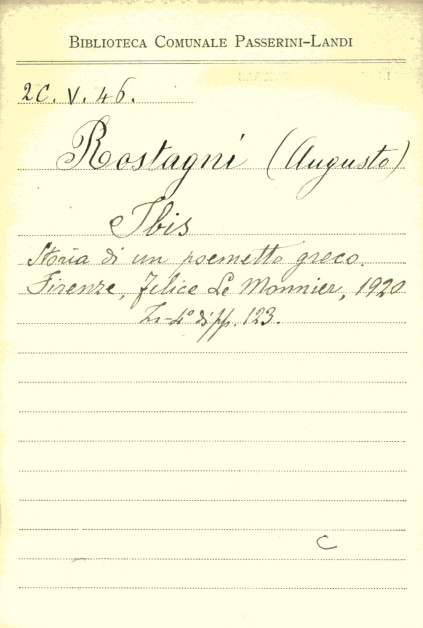 BIBLIOTECA COMUNALE PASSERINI-LANDI
2C. V. 46.
Rostagni (Augusto)
Ibis
Storia di un poemetto greco.
Firenze, Felice Le Monnier, 1920
In-4° di pp. 123.
C